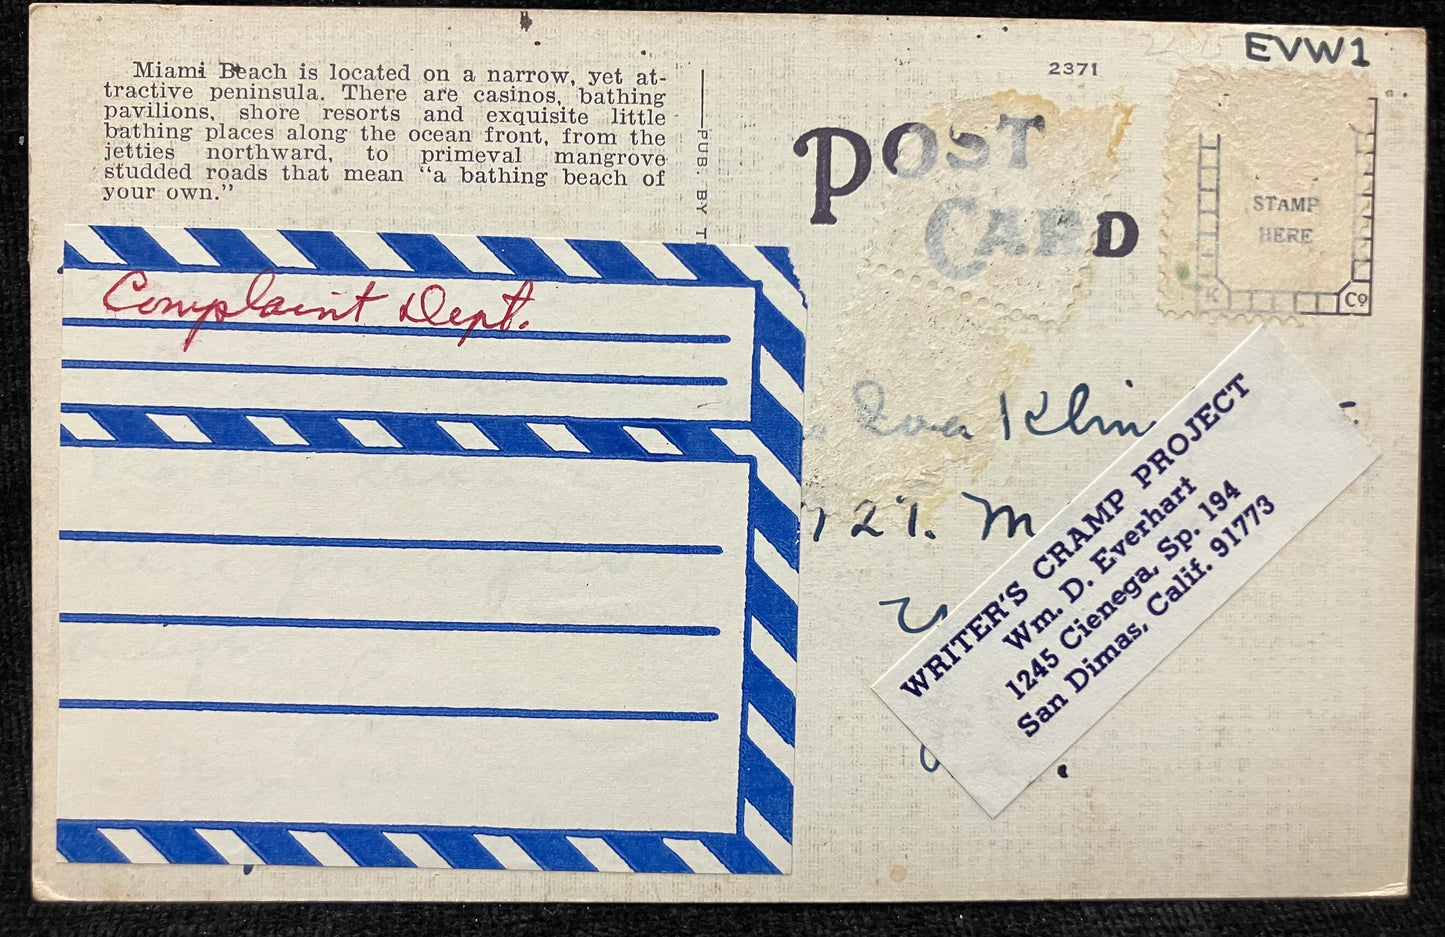 Miami Beach is located on a narrow, yet at-
tractive peninsula. There are casinos, bathing
pavilions, shore resorts and exquisite little
bathing places along the ocean front, from the
jetties northward, to primeval mangrove
studded roads that mean "a bathing beach of
your own."
PUB. BY T
2371
EVW1
POST
CARD
STAMP
HERE
K Co
Complaint Dept.
Klin
721. M
WRITER'S CRAMP PROJECT
Wm. D. Everhart
1245 Cienega, Sp. 194
San Dimas, Calif. 91773